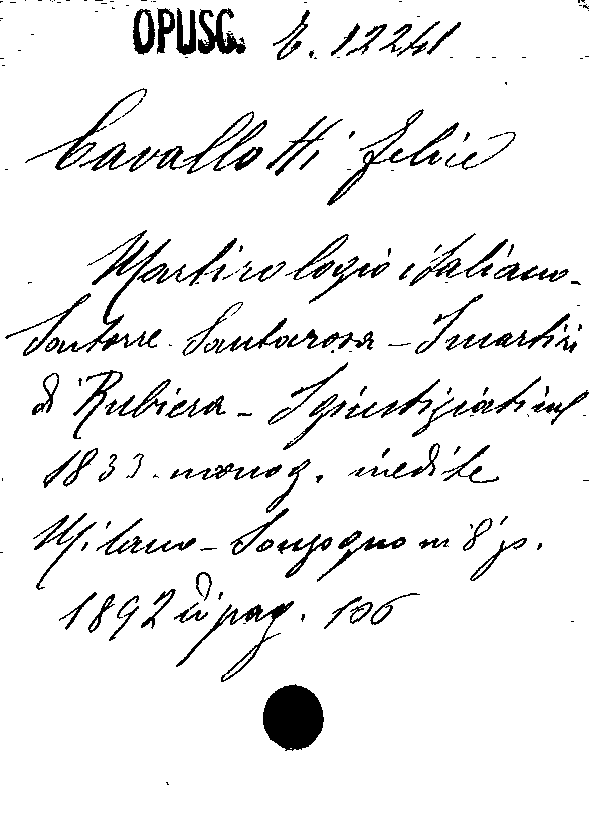 OPUSC. E. 12241
Cavallotti Felice
Martirologio italiano-
Santorre Santarosa - I martiri
di Rubiera - I giustiziati nel
1833. monog. inedite
Milano - Sonzogno in 8° p.
1892 di pag. 106